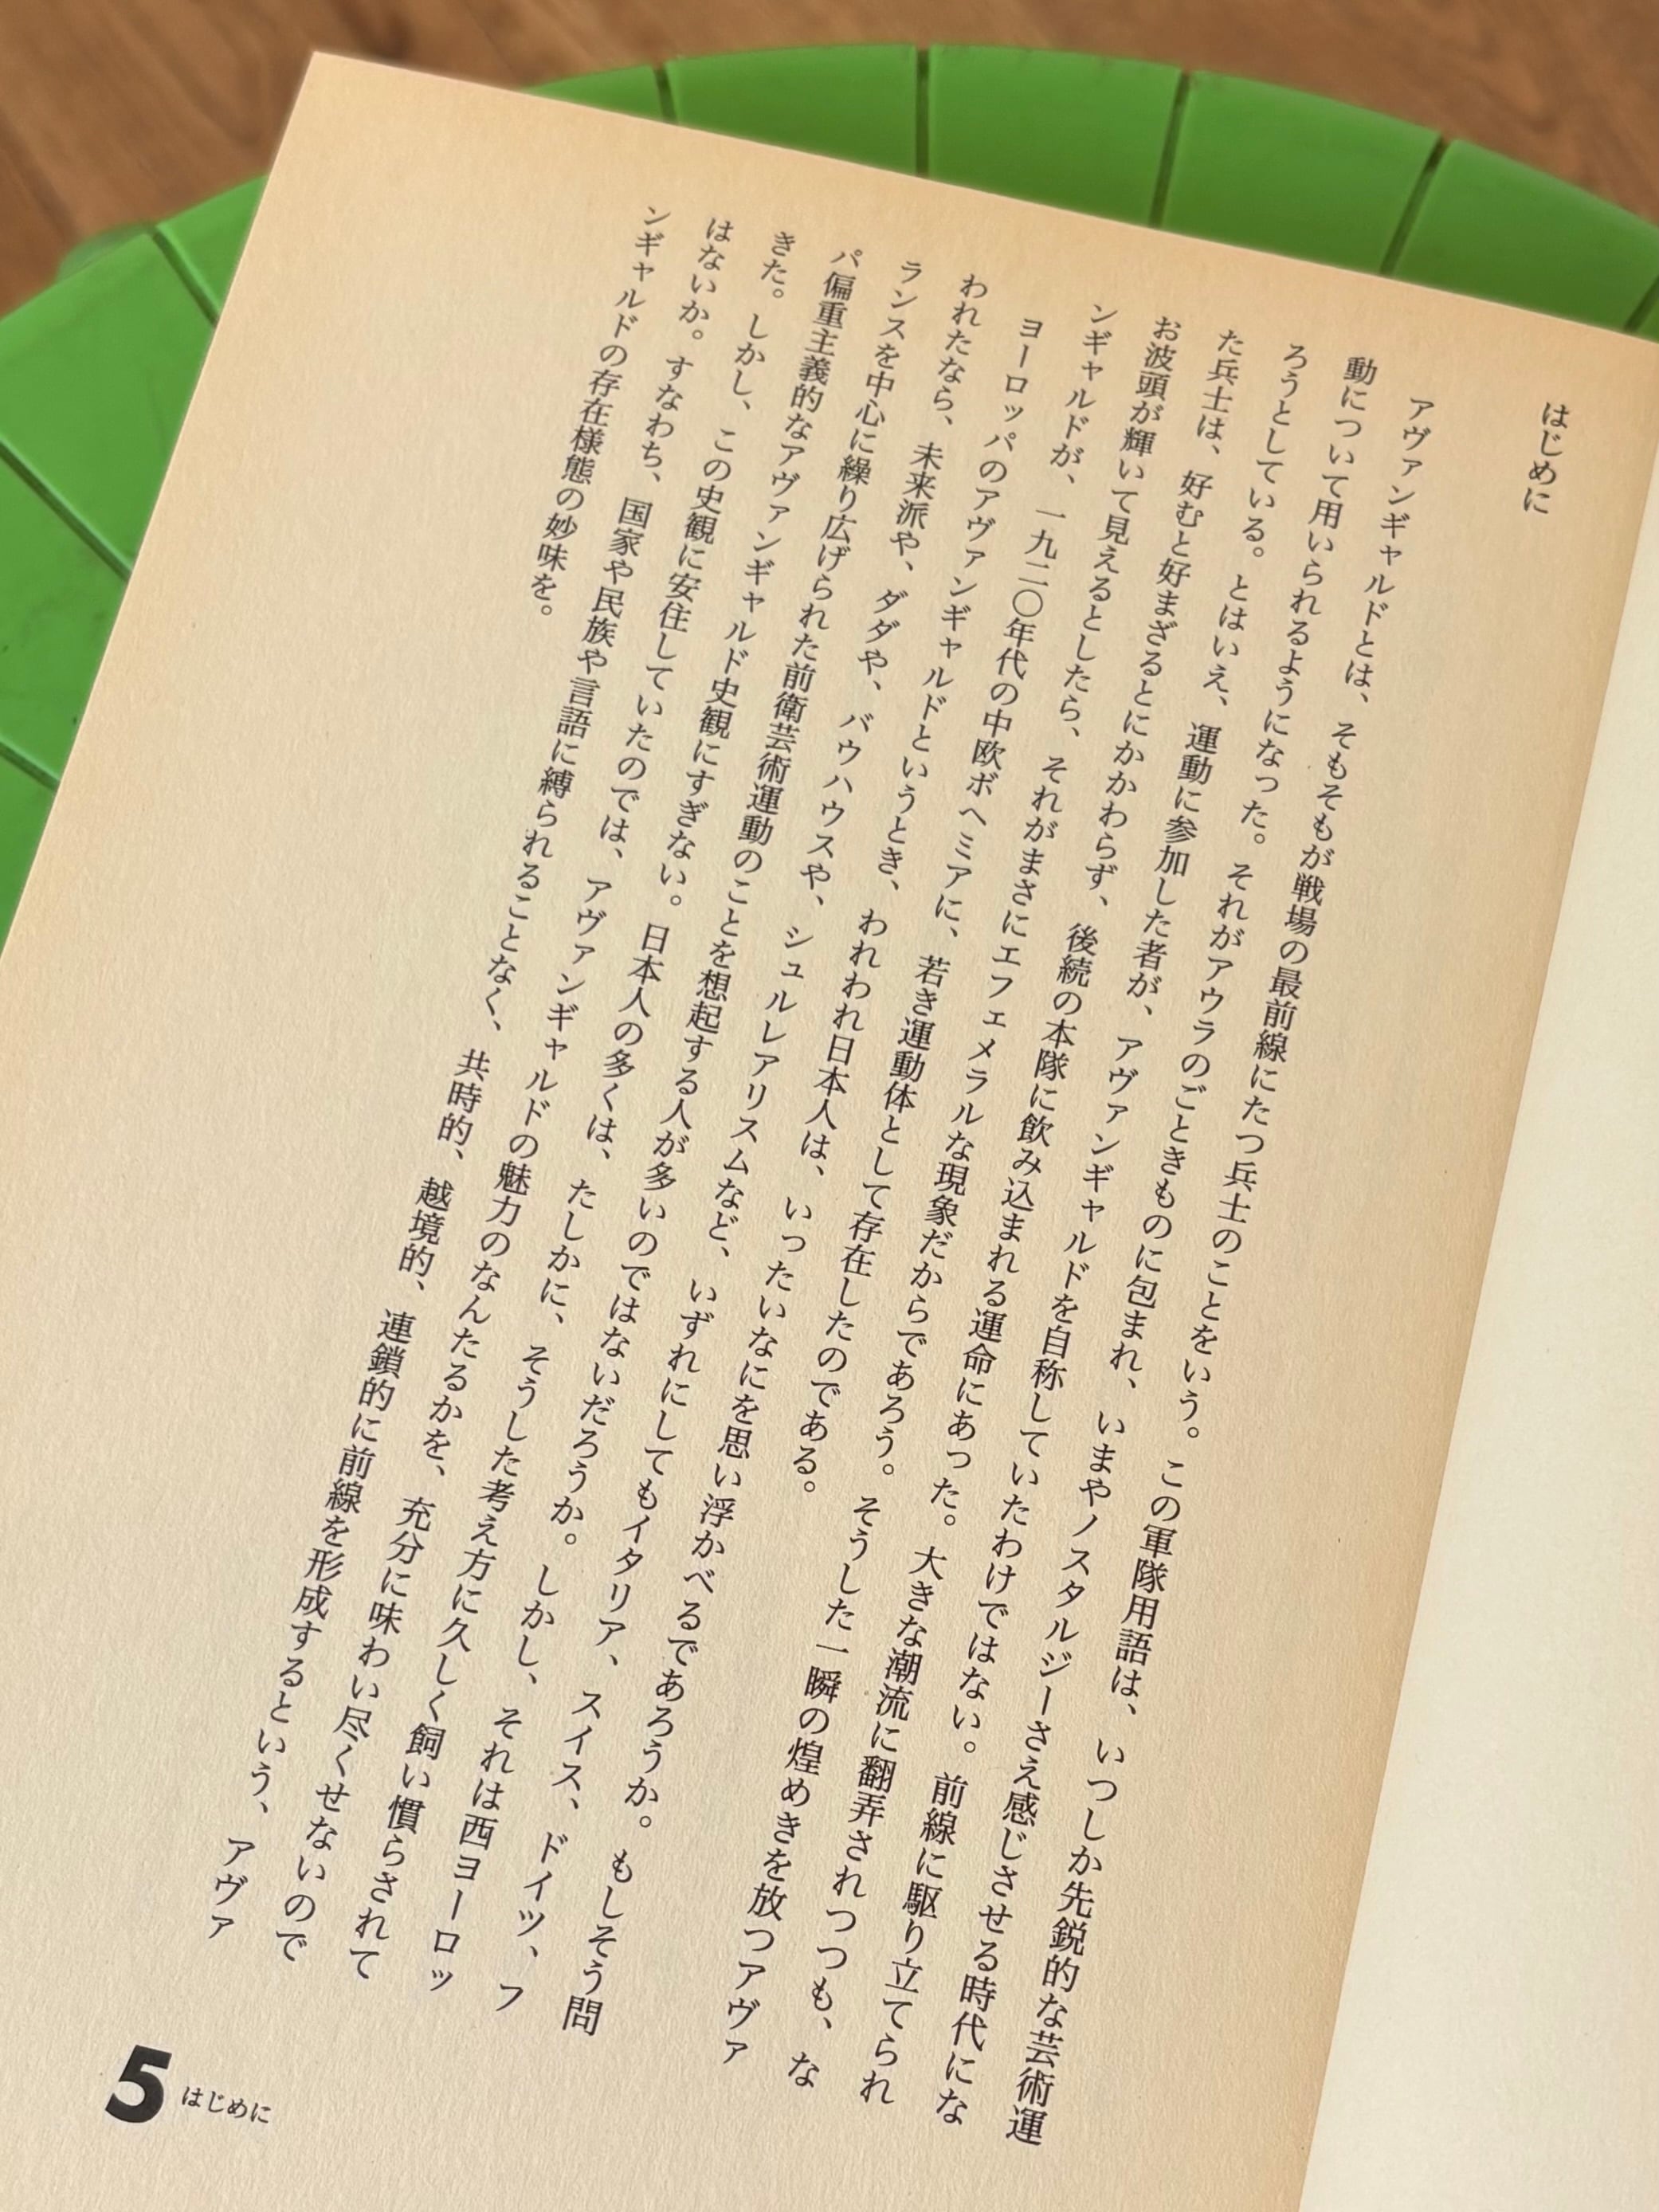 はじめに
アヴァンギャルドとは、そもそもが戦場の最前線にたつ兵士のことをいう。この軍隊用語は、いつしか先鋭的な芸術運
動について用いられるようになった。それがアウラのごときものに包まれ、いまやノスタルジーさえ感じさせる時代にな
ろうとしている。とはいえ、運動に参加した者が、アヴァンギャルドを自称していたわけではない。前線に駆り立てられ
た兵士は、好むと好まざるとにかかわらず、後続の本隊に飲み込まれる運命にあった。大きな潮流に翻弄されつつも、な
お波頭が輝いて見えるとしたら、それがまさにエフェメラルな現象だからであろう。そうした一瞬の煌めきを放つアヴァ
ンギャルドが、一九二〇年代の中欧ボヘミアに、若き運動体として存在したのである。
ヨーロッパのアヴァンギャルドというとき、われわれ日本人は、いったいなにを思い浮かべるであろうか。もしそう問
われたなら、未来派や、ダダや、バウハウスや、シュルレアリスムなど、いずれにしてもイタリア、スイス、ドイツ、フ
ランスを中心に繰り広げられた前衛芸術運動のことを想起する人が多いのではないだろうか。しかし、それは西ヨーロッ
パ偏重主義的なアヴァンギャルド史観にすぎない。日本人の多くは、たしかに、そうした考え方に久しく飼い慣らされて
きた。しかし、この史観に安住していたのでは、アヴァンギャルドの魅力のなんたるかを、充分に味わい尽くせないので
はないか。すなわち、国家や民族や言語に縛られることなく、共時的、越境的、連鎖的に前線を形成するという、アヴァ
ンギャルドの存在様態の妙味を。
5 はじめに